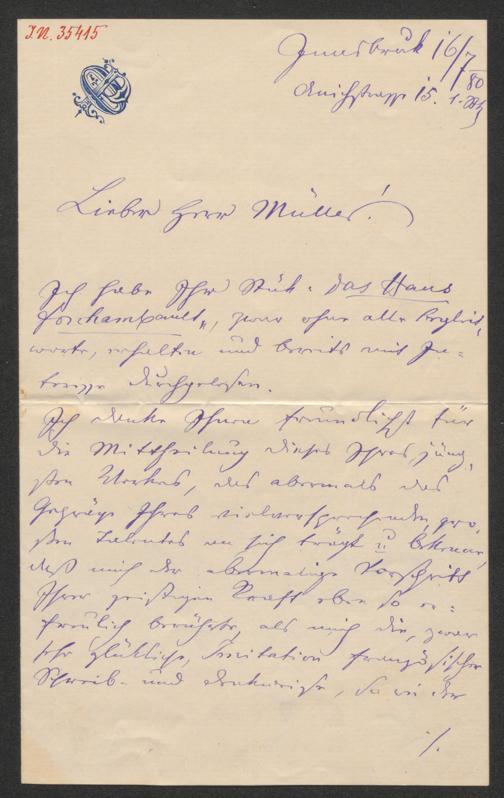 I.N. 35415
Innsbruck 16/7 80
Anichstrasse 15. 1. Stk
Lieber Herr Müller!
Ich habe Ihr Stück "das Haus
Forchambault", zwar ohne alle Begleit-
worte, erhalten und bereits mit In-
teresse durchgelesen.
Ich danke Ihnen freundlichst für
die Mittheilung dieses Ihres jüng-
sten Werkes, das abermals das
Gepräge Ihres vielversprechenden, gro-
ßen Talentes an sich trägt u. bekenne,
daß mich der abermalige Fortschritt
Ihrer geistigen Kraft eben so er-
freulich berührte, als mich die, zwar
sehr glückliche, Imitation französischer
Schreib- und Denkweise, so wie der
./.